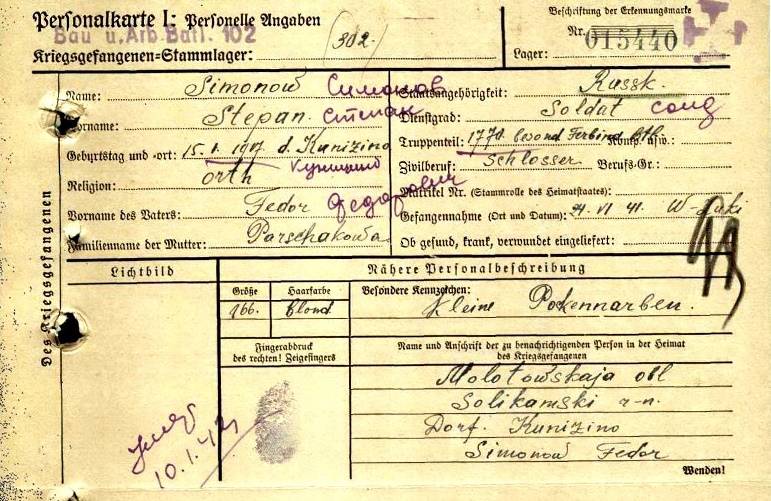 Personalkarte I: Personelle Angaben
Bau u. Arb. Batl. 102
Kriegsgefangenen=Stammlager: (302.)
Beschriftung der Erkennungsmarke
Nr. 015440
Lager:
Des Kriegsgefangenen
Name: Simonow Симонов
Vorname: Stepan. Степан
Geburtstag und =ort: 15. 1. 1917 d. Kunizino
Religion: orth
Vorname des Vaters: Fedor Федорович
Familienname der Mutter: Parschakowa
Staatsangehörigkeit: Russk.
Dienstgrad: Soldat солд
Truppenteil: Komp. usw.:
Zivilberuf: Schlosser Berufs=Gr.:
Matrikel Nr. (Stammrolle des Heimatstaates):
Gefangennahme (Ort und Datum): VI 41. W-Luki
Ob gesund, krank, verwundet eingeliefert:
Lichtbild
Nähere Personalbeschreibung
Größe Haarfarbe Besondere Kennzeichen:
166. blond Kleine Pockennarben.
Fingerabdruck
des rechten! Zeigefingers
Name und Anschrift der zu benachrichtigenden Person in der Heimat
des Kriegsgefangenen
Molotowskaja obl
Solikamski r-n.
Dorf. Kunizino
Simonow Fedor
10.1.42
Wenden!